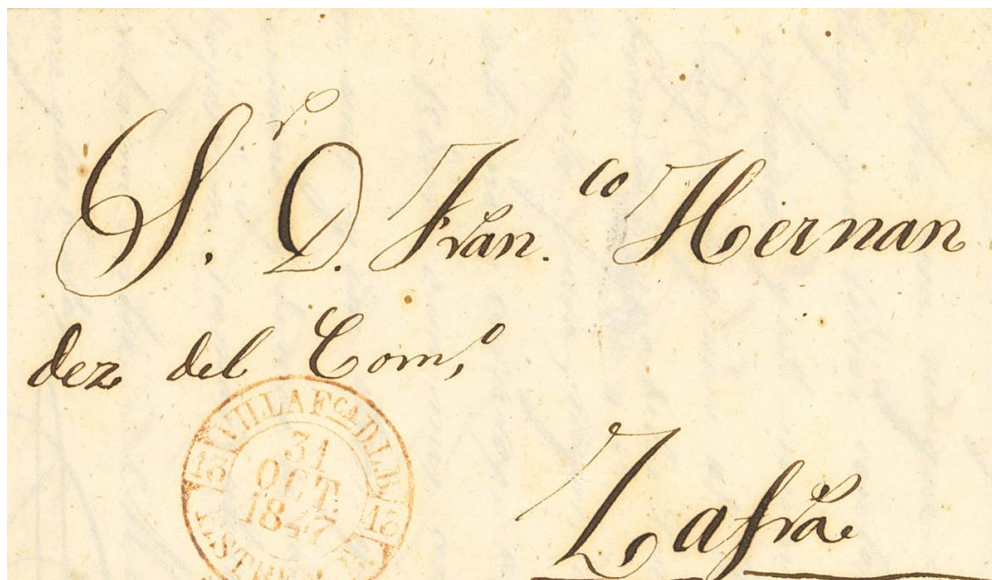 S.r D. Fran.co Hernan
dez del Com.o
VILLAFCA DL B
31
OCT.
1847
13
ESTREM
Zafra